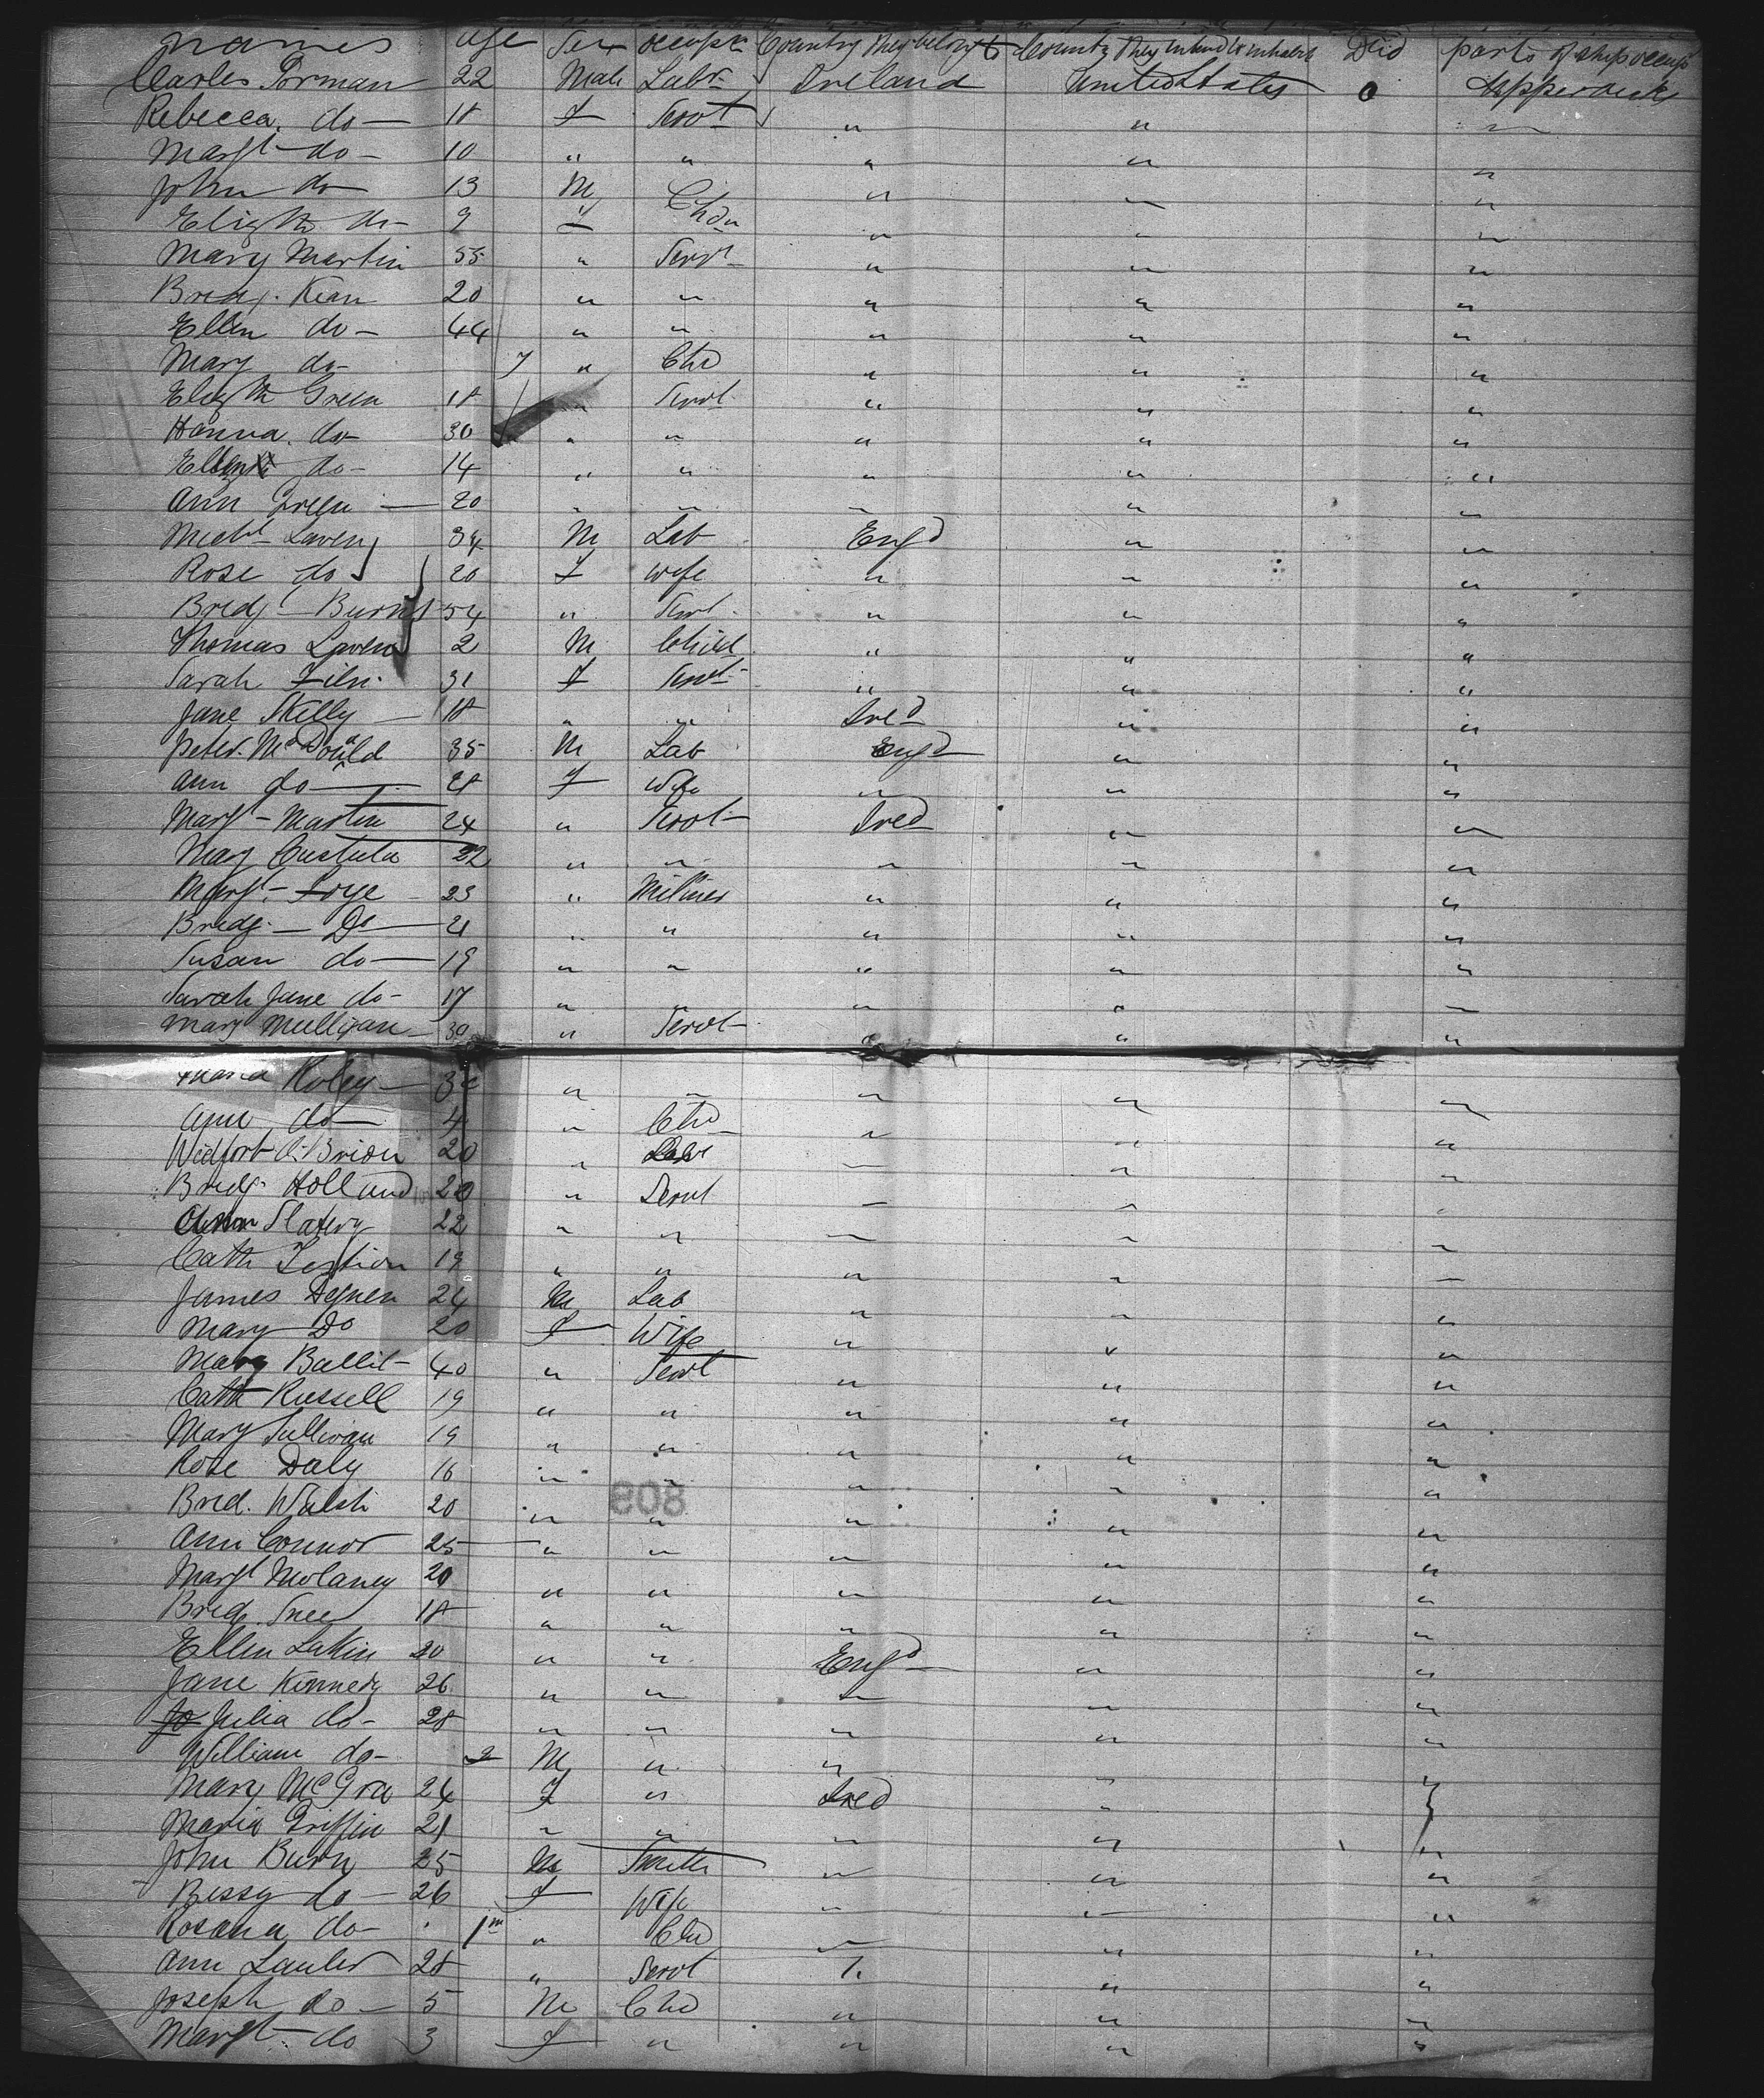 names age Sex occupn Country they belong to Country they intend to inhabit Died parts of ship occup
Carles Porman 22 Male Labr Ireland United States 0 Upperdeck
Rebecca do — 18 F Servt " " "
Margt do — 10 " " " " "
John do 13 M " " "
Elizth do — 9 F Chdn " " "
Mary Martin 55 " Servt " " "
Bridg. Kean 20 " " " " "
Ellen do — 44 " " " " "
Mary do — 7 " Chd " " "
Elizth Green 18 " Servt " " "
Hanna do 30 " " " " "
Ellen do — 14 " " " " "
Ann Green — 20 " " " " "
Michl Laven 34 M Lab Engd " "
Rose do 20 F wife " " "
Bridg Burns 54 " Servt " " "
Thomas Laven 2 M Child " " "
Sarah 31 F Servt " " "
Jane Skelly — 18 " " Ired " "
Peter McDonald 35 M Lab Engd " "
Ann do — 28 F Wife " " "
Margt Martin 24 " Servt Ired " "
Mary 22 " " " " "
Margt Foye 23 " Miliner " " "
Bridg — Do — 21 " " " " "
Susan do — 19 " " " " "
Sarah Jane do — 17 " " " " "
Mary Mulligan 30 " Servt " " "
Maria — " " " " "
Ann do — 4 " Chd " " "
O'Brion 20 " " " "
Bridg Holland 20 " Servt " " "
Slatery 22 " " " " "
Cath 19 " " " " "
James Degnen 24 M Lab " " "
Mary Do 20 F Wife " " "
Mary Ballit 40 " Servt " " "
Cath Russell 19 " " " " "
Mary Sullivan 19 " " " " "
Rose Daly 16 " " " " "
Brid. Walsh 20 " " " " "
808
Ann Connor 25 " " " " "
Margt Molaney 20 " " " " "
Bridg. 18 " " " " "
Ellen Lakin 20 " " Engd " "
Jane Kennedy 26 " " " " "
Jo Julia do — 28 " " " " "
William do — 2 M " " " "
Mary McGra 24 F " Ired " "
Maria Griffin 21 " " " " "
John Burn 25 M Smith " " "
Bessy do — 26 F Wife " " "
Rosana do — 1m " Chd " " "
Ann Lauler 28 " Servt " " "
Joseph do — 5 M Chd " " "
Margt do 3 F " " " "